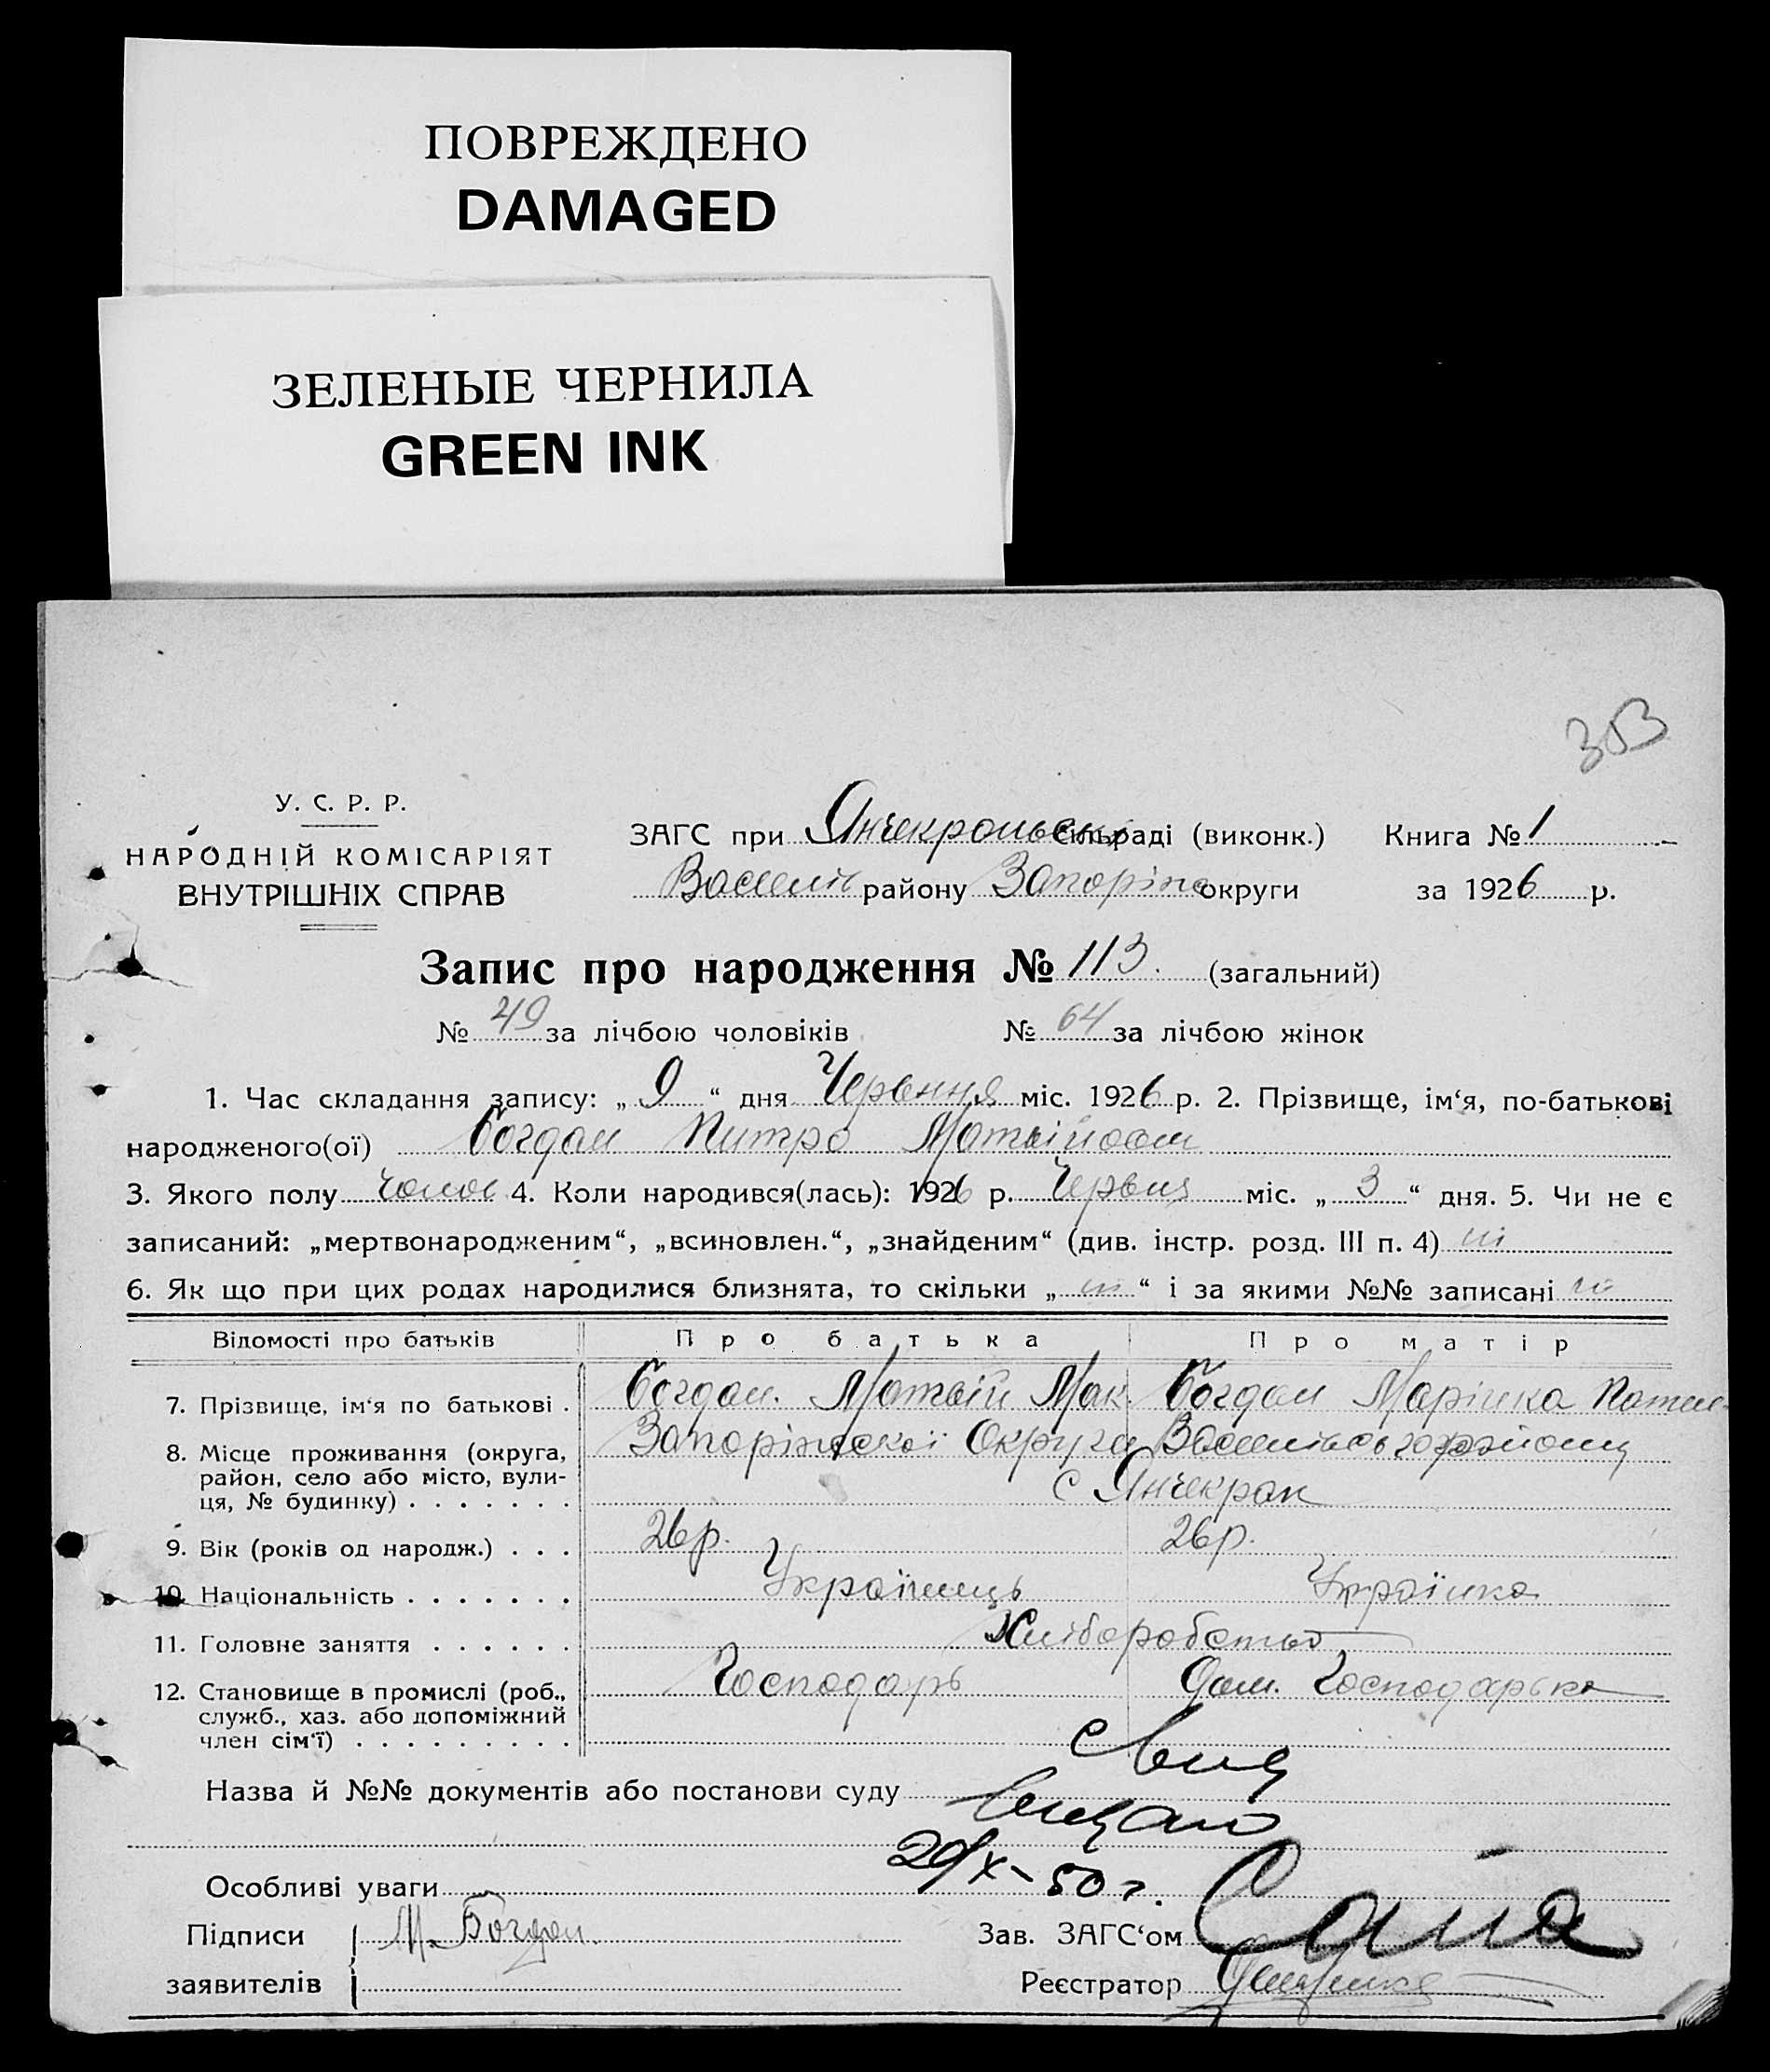 ПОВРЕЖДЕНО
DAMAGED
ЗЕЛЕНЫЕ ЧЕРНИЛА
GREEN INK
353
У. С. Р. Р.
НАРОДНІЙ КОМІСАРІЯТ
ВНУТРІШНІХ СПРАВ
ЗАГС при Янчекрацьк сільраді (виконк.) Книга № 1
Василів району Запоріж округи за 1926 р.
Запис про народження № 113. (загальний)
№ 49 за лічбою чоловіків № 64 за лічбою жінок
1. Час складання запису: „ 9 “ дня Червння міс. 1926 р. 2. Прізвище, ім‘я, по-батькові
народженого(ої) Богдан Питро Матвійов
3. Якого полу чолов 4. Коли народився(лась): 1926 р. Червця міс. „ 3 “ дня. 5. Чи не є
записаний: „мертвонародженим“, „всиновлен.“, „знайденим“ (див. інстр. розд. III п. 4) ні
6. Як що при цих родах народилися близнята, то скільки „ ні “ і за якими №№ записані ні
Відомості про батьків Про батька Про матір
7. Прізвище, ім‘я по батькові . Богдан. Матвій Мак. Богдан Марінка
8. Місце проживання (округа, Запоріжської Округи Василівського району
район, село або місто, вули- с Янчекрак
ця, № будинку) . . . . . . .
9. Вік (років од народж.) . . . 26 р. 26 р.
10. Національність . . . . . . . Українець Українка
11. Головне заняття . . . . . . Хліборобство
12. Становище в промислі (роб., Господарь Дом. Господарька
служб., хаз. або допоміжний
член сім‘ї) . . . . . . . . .
Назва й №№ документів або постанови суду
20/X-50 г.
Особливі уваги
Підписи М. Богдан. Зав. ЗАГС‘ом
заявителів Реєстратор